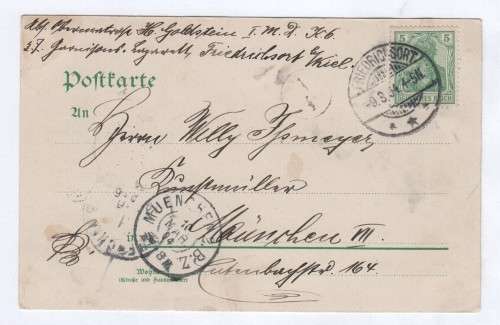 Abs. Obermatrose H. Goldstein I. M. D. K 6.
z. Z. Garnisons-Lazarett, Friedrichsort b/ Kiel.
5 5
FRIEDRICHSORT
9.8.04. 4-5N.
Postkarte
An
Herrn Willy Thomeyer,
Kunstmüller
MUENCHEN
B.Z.
in München III.
164
Wohnung
(Straße und Hausnummer)